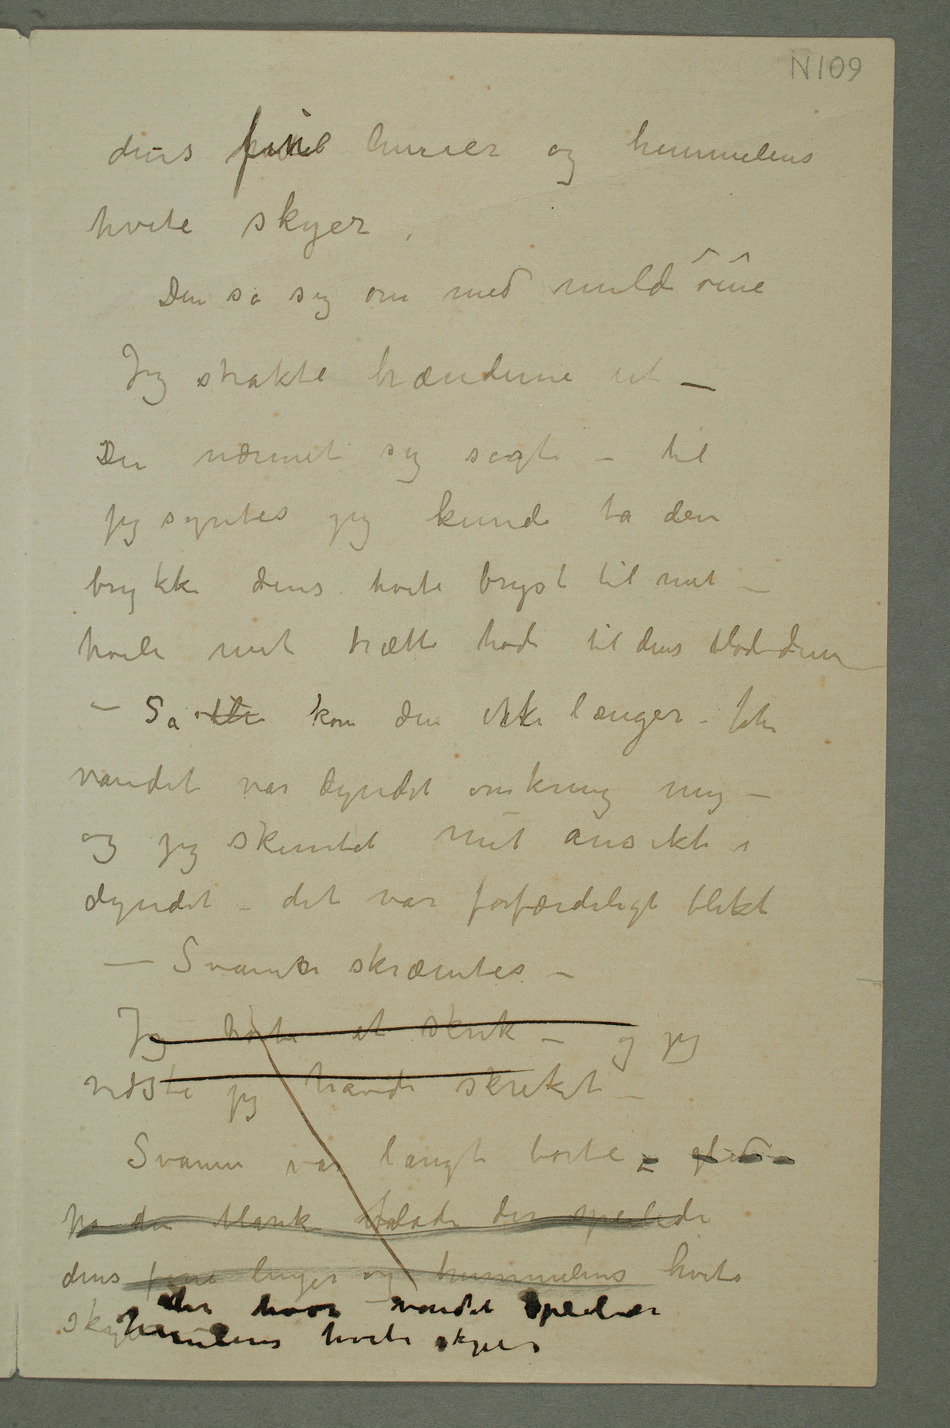 N109
dens fine linier og himmelens
hvite skyer.
Den så sig om med mild öine
Jeg strakte hænderne ut —
Den nærmet sig sagte – til
jeg syntes jeg kunde ta den
trykke dens hvite bryst til mit –
hvile mit trætte hode til dens
– Så kom den ikke længer –
vandet var dyndet omkring mig –
og jeg skimtet mit ansikt i
dyndet – det var forfærdeligt blekt
— Svanen skræmtes –
Jeg hørte et skrik – og jeg
vidste jeg havde skreket –
Svanen var langt borte –
på den blank flade der speilede
dens fine linjer og himmelens hvite
skyer
der hvor vandet speiler
himlens hvite skyer